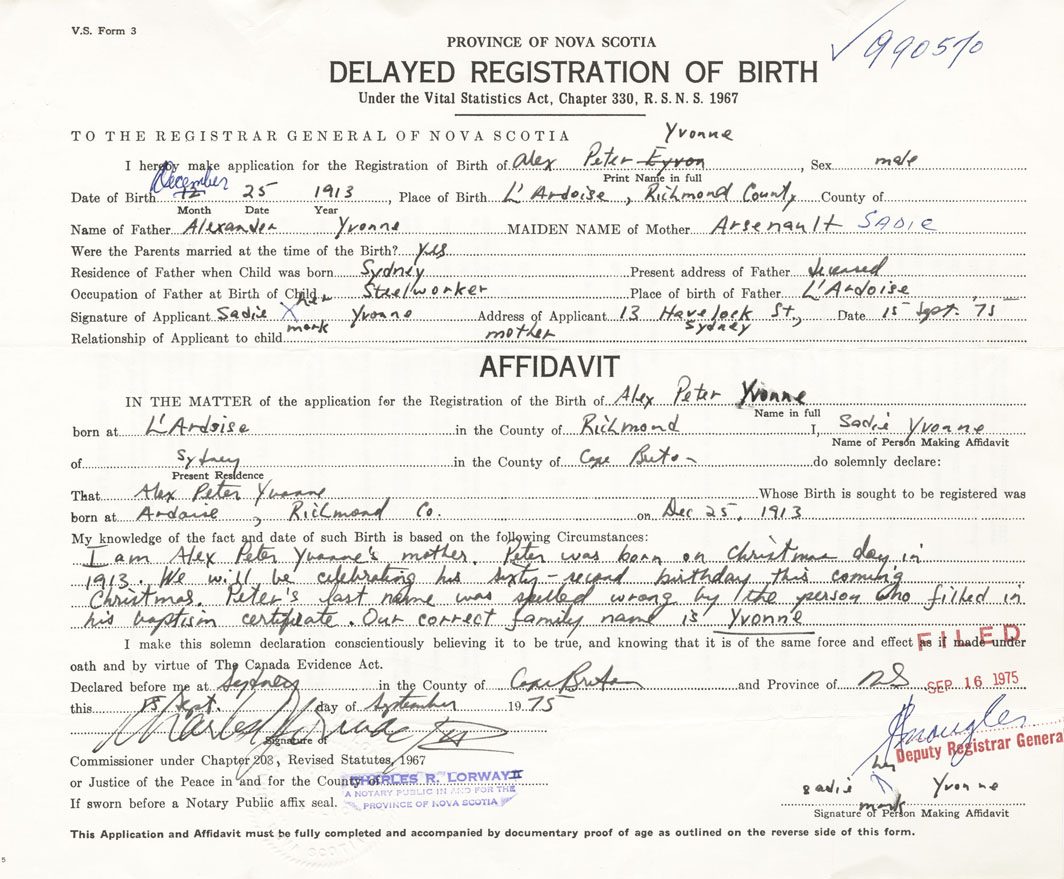 V.S. Form 3
990570
PROVINCE OF NOVA SCOTIA
DELAYED REGISTRATION OF BIRTH
Under the Vital Statistics Act, Chapter 330, R. S. N. S. 1967
TO THE REGISTRAR GENERAL OF NOVA SCOTIA
Yvonne
I hereby make application for the Registration of Birth of Alex Peter Eyvon, Sex male
Print Name in full
December
Date of Birth 12 25 1913, Place of Birth L'Ardoise, Richmond County, County of
Month Date Year
Name of Father Alexander Yvonne MAIDEN NAME of Mother Arsenault SADIE
Were the Parents married at the time of the Birth? Yes
Residence of Father when Child was born Sydney Present address of Father deceased
Occupation of Father at Birth of Child Steelworker Place of birth of Father L'Ardoise
Signature of Applicant Sadie X her mark Yvonne Address of Applicant 13 Havelock St., Sydney Date 15 Sept. 75
Relationship of Applicant to child mother
AFFIDAVIT
IN THE MATTER of the application for the Registration of the Birth of Alex Peter Yvonne
Name in full
born at L'Ardoise in the County of Richmond I, Sadie Yvonne
Name of Person Making Affidavit
of Sydney in the County of Cape Breton do solemnly declare:
Present Residence
That Alex Peter Yvonne Whose Birth is sought to be registered was
born at Ardoise, Richmond Co. on Dec 25, 1913
My knowledge of the fact and date of such Birth is based on the following Circumstances:
I am Alex Peter Yvonne's mother. Peter was born on Christmas day in
1913. We will be celebrating his sixty-second birthday this coming
Christmas. Peter's last name was spelled wrong by the person who filled in
his baptism certificate. Our correct family name is Yvonne
I make this solemn declaration conscientiously believing it to be true, and knowing that it is of the same force and effect as if made under
FILED
oath and by virtue of The Canada Evidence Act.
Declared before me at Sydney in the County of Cape Breton and Province of NS
SEP 16 1975
this 15 Sept. day of September 1975
Signature of
Deputy Registrar General
Commissioner under Chapter 203, Revised Statutes, 1967
or Justice of the Peace in and for the County of
CHARLES R. LORWAY II
A NOTARY PUBLIC IN AND FOR THE
PROVINCE OF NOVA SCOTIA
If sworn before a Notary Public affix seal.
her
Sadie Yvonne
mark
Signature of Person Making Affidavit
This Application and Affidavit must be fully completed and accompanied by documentary proof of age as outlined on the reverse side of this form.
5